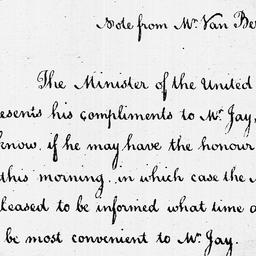 Note from Mr. Van Be
The Minister of the United
esents his compliments to Mr. Jay,
know, if he may have the honour
this morning, in which case the
leased to be informed what time
be most convenient to Mr. Jay.